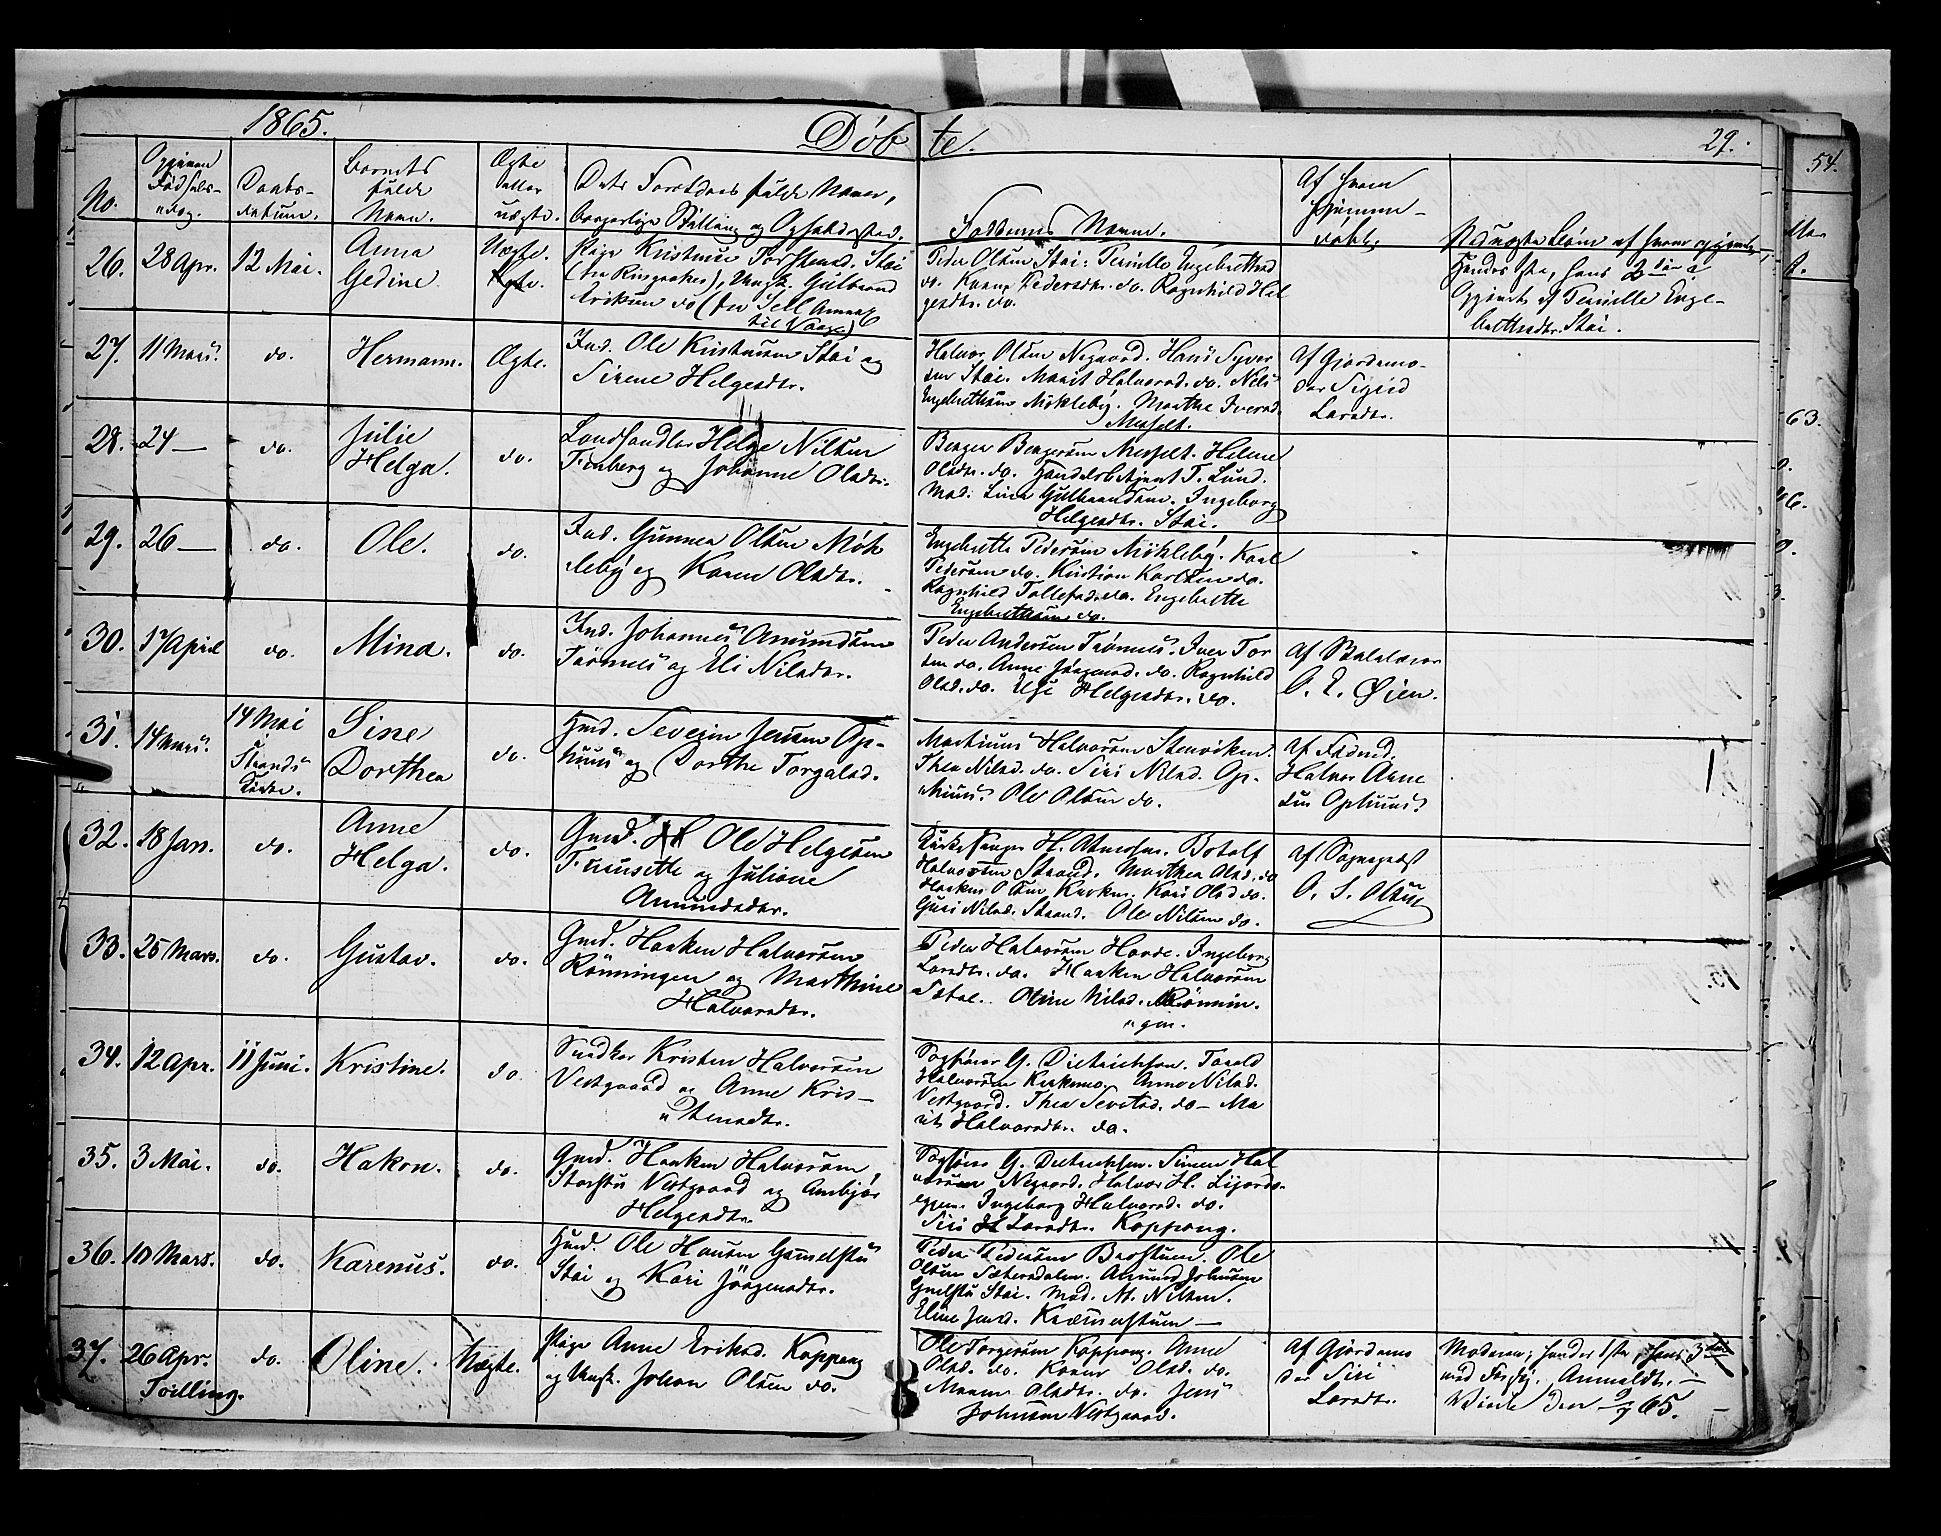 1865.
Døbte.
29.
54.
No.
Opgiven Fødsels-dag.
Daabs-datum.
Barnets fulde Navn.
Ægte eller uægte.
Dets Forældres fulde Navne,
borgerlige Stilling og Opholdssted.
Faddernes Navne.
Af hvem hjemme-døbt.
Ved uægte Børn af hvem opgivet,
26. 28 Apr. 12 Mai. Anna Gedine. Uægte.
Pige Kristine Torstensd. Stai
(fra Ringsaker), Ungk. Gulbrand
Eriksen do (fra Sell Annex
til Vaage)
Peder Olsen Stai. Pernille Engebrethsd.
do. Karen Pedersdtr. do. Ragnhild Hel
gesdtr. do.
Hendes 1ste, hans 2den
Opgivet af Pernille Enge-
brethsdtr. Stai.
27. 11 Mars. do. Hermann. Ægte.
Ind. Ole Kristensen Stai og
Sirene Helgesdtr.
Halvor Olsen Negaard. Hans Syver
sen Stai. Marit Halvorsd. do. Nils
Engebrethsen Møkleby. Marthe Iversd.
Messelt.
Af Gjordemo-
der Sigrid
Larsdtr.
28. 24 — do. Julie Helga. do.
Landhandler Helge Nilsen
Fonberg og Johanne Olsdtr.
Berger Bergersen Messelt. Helene
Olsdtr. do. Handelsbetjent T. Lund.
Mad. Lina Gulbrandsen. Ingeborg
Helgesdtr. Stai.
29. 26 — do. Ole. do.
Ind. Gunner Olsen Møk
leby og Karen Olsdtr.
Engebrethe Pedersen Møkleby. Karl
Pedersen do. Kristian Karlsen do.
Ragnhild Tollefsd. do. Engebrethe
Engebrethsen do.
30. 17 April do. Mina. do.
Ind. Johannes Amundsen
Trønnes og Eli Nilsdtr.
Peder Andersen Trønnes. Iver Tor
sen do. Anne Jørgensd. do. Ragnhild
Olsd. do. Helgesdtr. do.
Af Skolelærer
O. E. Øien.
31. 14 Mars. 14 Mai Strands Kirke. Sine Dorthea do.
Hmd. Severin Jensen Op-
huus og Dorthe Torgalsd.
Martinus Halvorsen Stenviken.
Thea Nilsd. do. Siri Nilsd. Op-
huus. Ole Olsen do.
Af Fadder
Halvor Arne
sen Ophuus.
32. 18 Jan. do. Anne Helga. do.
Gmd. Ole Helgesen
Fuusette og Juliane
Amundsdtr.
Kirkesanger H. Botolf
Halvorsen Strand. Marthea Olsd. do
Haaken Olsen Kroken. Kari Olsd do.
Guri Nilsd. Strand. Ole Nilsen do.
Af Sognepræst
O. S. Olsen
33. 25 Mars. do. Gustav. do.
Gmd. Haaken Halvorsen
Rønningen og Marthine
Halvorsdtr.
Peder Halvorsen Horde. Ingeborg
Larsdtr. do. Haaken Halvorsen
Sætre. Oline Nilsd. Rønnin
gen.
34. 12 Apr. 11 Juni. Kristine. do
Snedker Kristen Halvorsen
Vestgaard og Anne Kris-
tensdtr.
Sagfører G. Dietrichson. Torald
Halvorsen Kirkemo. Anne Nilsd.
Vestgaard. Thea Sevelsd. do — Ma
rit Halvorsdtr. do.
35. 3 Mai. do. Hakon. do.
Gmd. Haaken Halvorsen,
Storstu Vestgaard og Ambjør
Helgesdtr.
Sagfører G. Dietrichson. Simen Hal
vorsen Negaard. Halvor H. Lijords-
eggen. Ingeborg Halvorsd. do.
Siri Larsdtr. Koppang.
36. 10 Mars. do. Karenus. do.
Hmd. Ole Hansen Gamelstu
Stai og Kari Jørgensdtr.
Peder Pedersen Barstuen. Ole
Olsen Sætersdalen. Amund Johnsen
Gmelstu Stai. Mad. M. Nilsen.
Eline Jensd. Kræmmerstuen —
37. 26 Apr. Tvilling. do. Oline. Uægte.
Pige Anne Eriksd. Koppang
og Ungk. Johan Olsen do.
Ole Torgersen Koppang. Anne
Olsd. do. Karen Olsd. do.
Maren Olsdtr. do. Jens
Johnsen Vestgaard.
Af Gjordemo
der Siri
Larsdtr.
Moderen; hendes 1ste, hans 3die
med Anmeldt
den 9/7 65.